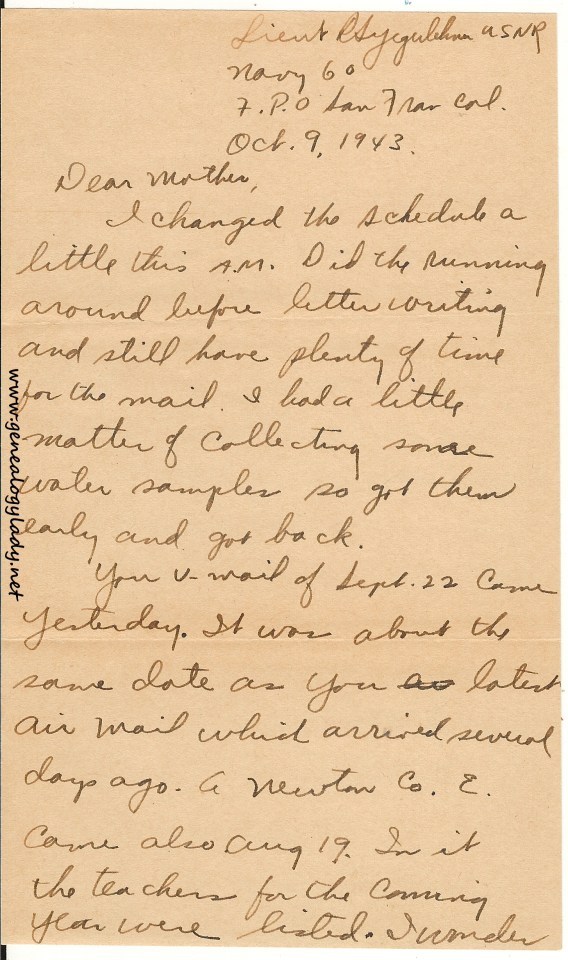 Lieut R H Yegerlehner USNR
Navy 60
F.P.O San Fran Cal.
Oct. 9, 1943.
Dear Mother,
I changed the schedule a
little this A.M. Did the running
around before letter writing
and still have plenty of time
for the mail. I had a little
matter of collecting some
water samples so got them
early and got back.
Your V-mail of Sept. 22 came
yesterday. It was about the
same date as your latest
air mail which arrived several
days ago. A Newton Co. E.
came also Aug 19. In it
the teachers for the coming
year were listed. I wonder
www.genealogylady.net